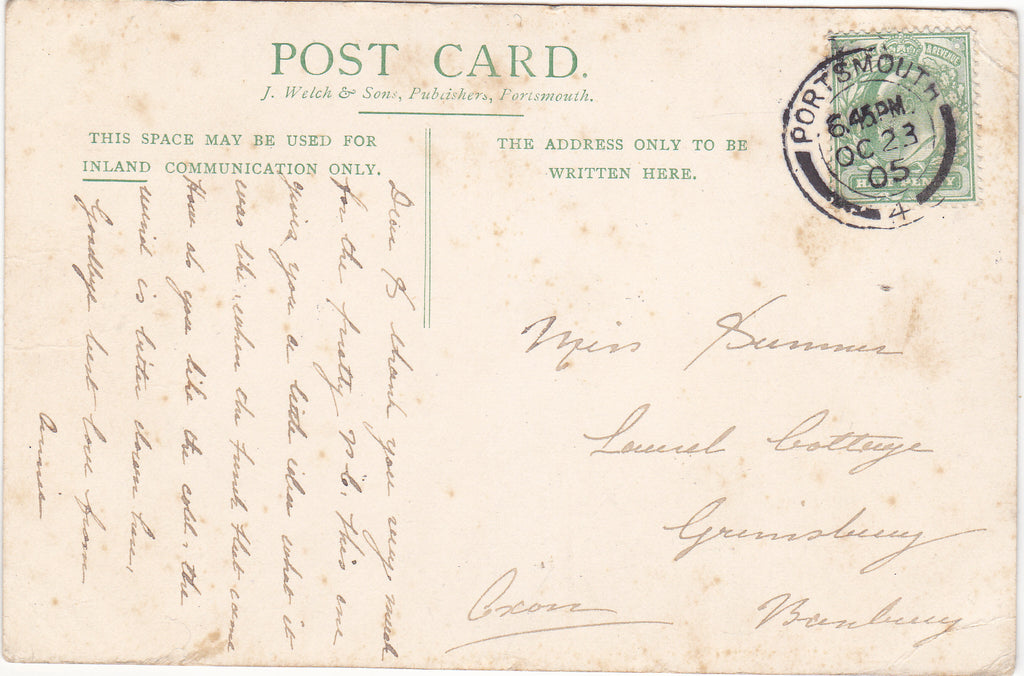 POST CARD.
J. Welch & Sons, Publishers, Portsmouth.
THIS SPACE MAY BE USED FOR
INLAND COMMUNICATION ONLY.
THE ADDRESS ONLY TO BE
WRITTEN HERE.
& REVENUE
HALFPENNY
PORTSMOUTH
6.45PM
OC 23
05
4
Dear thank you very much
for the pretty P.C. this one
gives you a little idea what it
was like when the funk that came
How do you like the cold, the
wind is bitter down here,
Goodbye best love from
Annie
Miss Summer
Laurel Cottage
Grimsbury
Banbury
Oxon